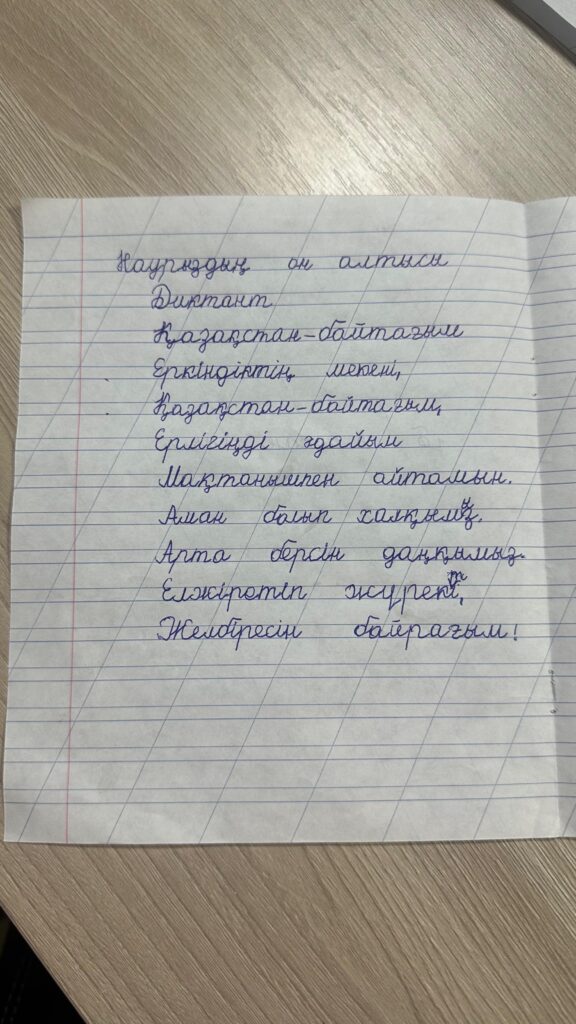 Наурыздың он алтысы
Диктант
Қазақстан-байтағым
Еркіндіктің мекені,
Қазақстан-байтағым,
Ерлігіңді әдайым
Мақтанышпен айтамын.
Аман болып халқымыз.
Арта берсін даңқымыз.
Елжіретіп жүректі,
Желбіресін байрағым!